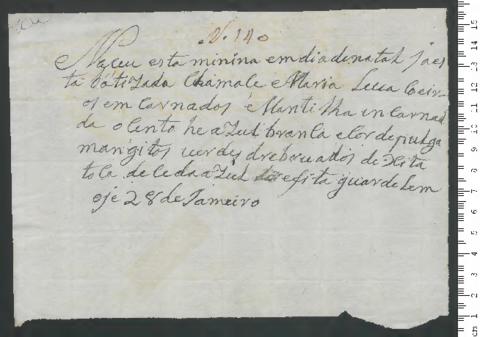 N. 140
Naçeu esta minina em dia de natal ja es
ta batizada Chamace Maria Leva Coeir
os em Carnados e Mantilha in Carna
da o lento he azul branca e cor de pulga
mangitos verdes de fita
tola de ceda azul e fita guardesem
oje 28 de Janeiro